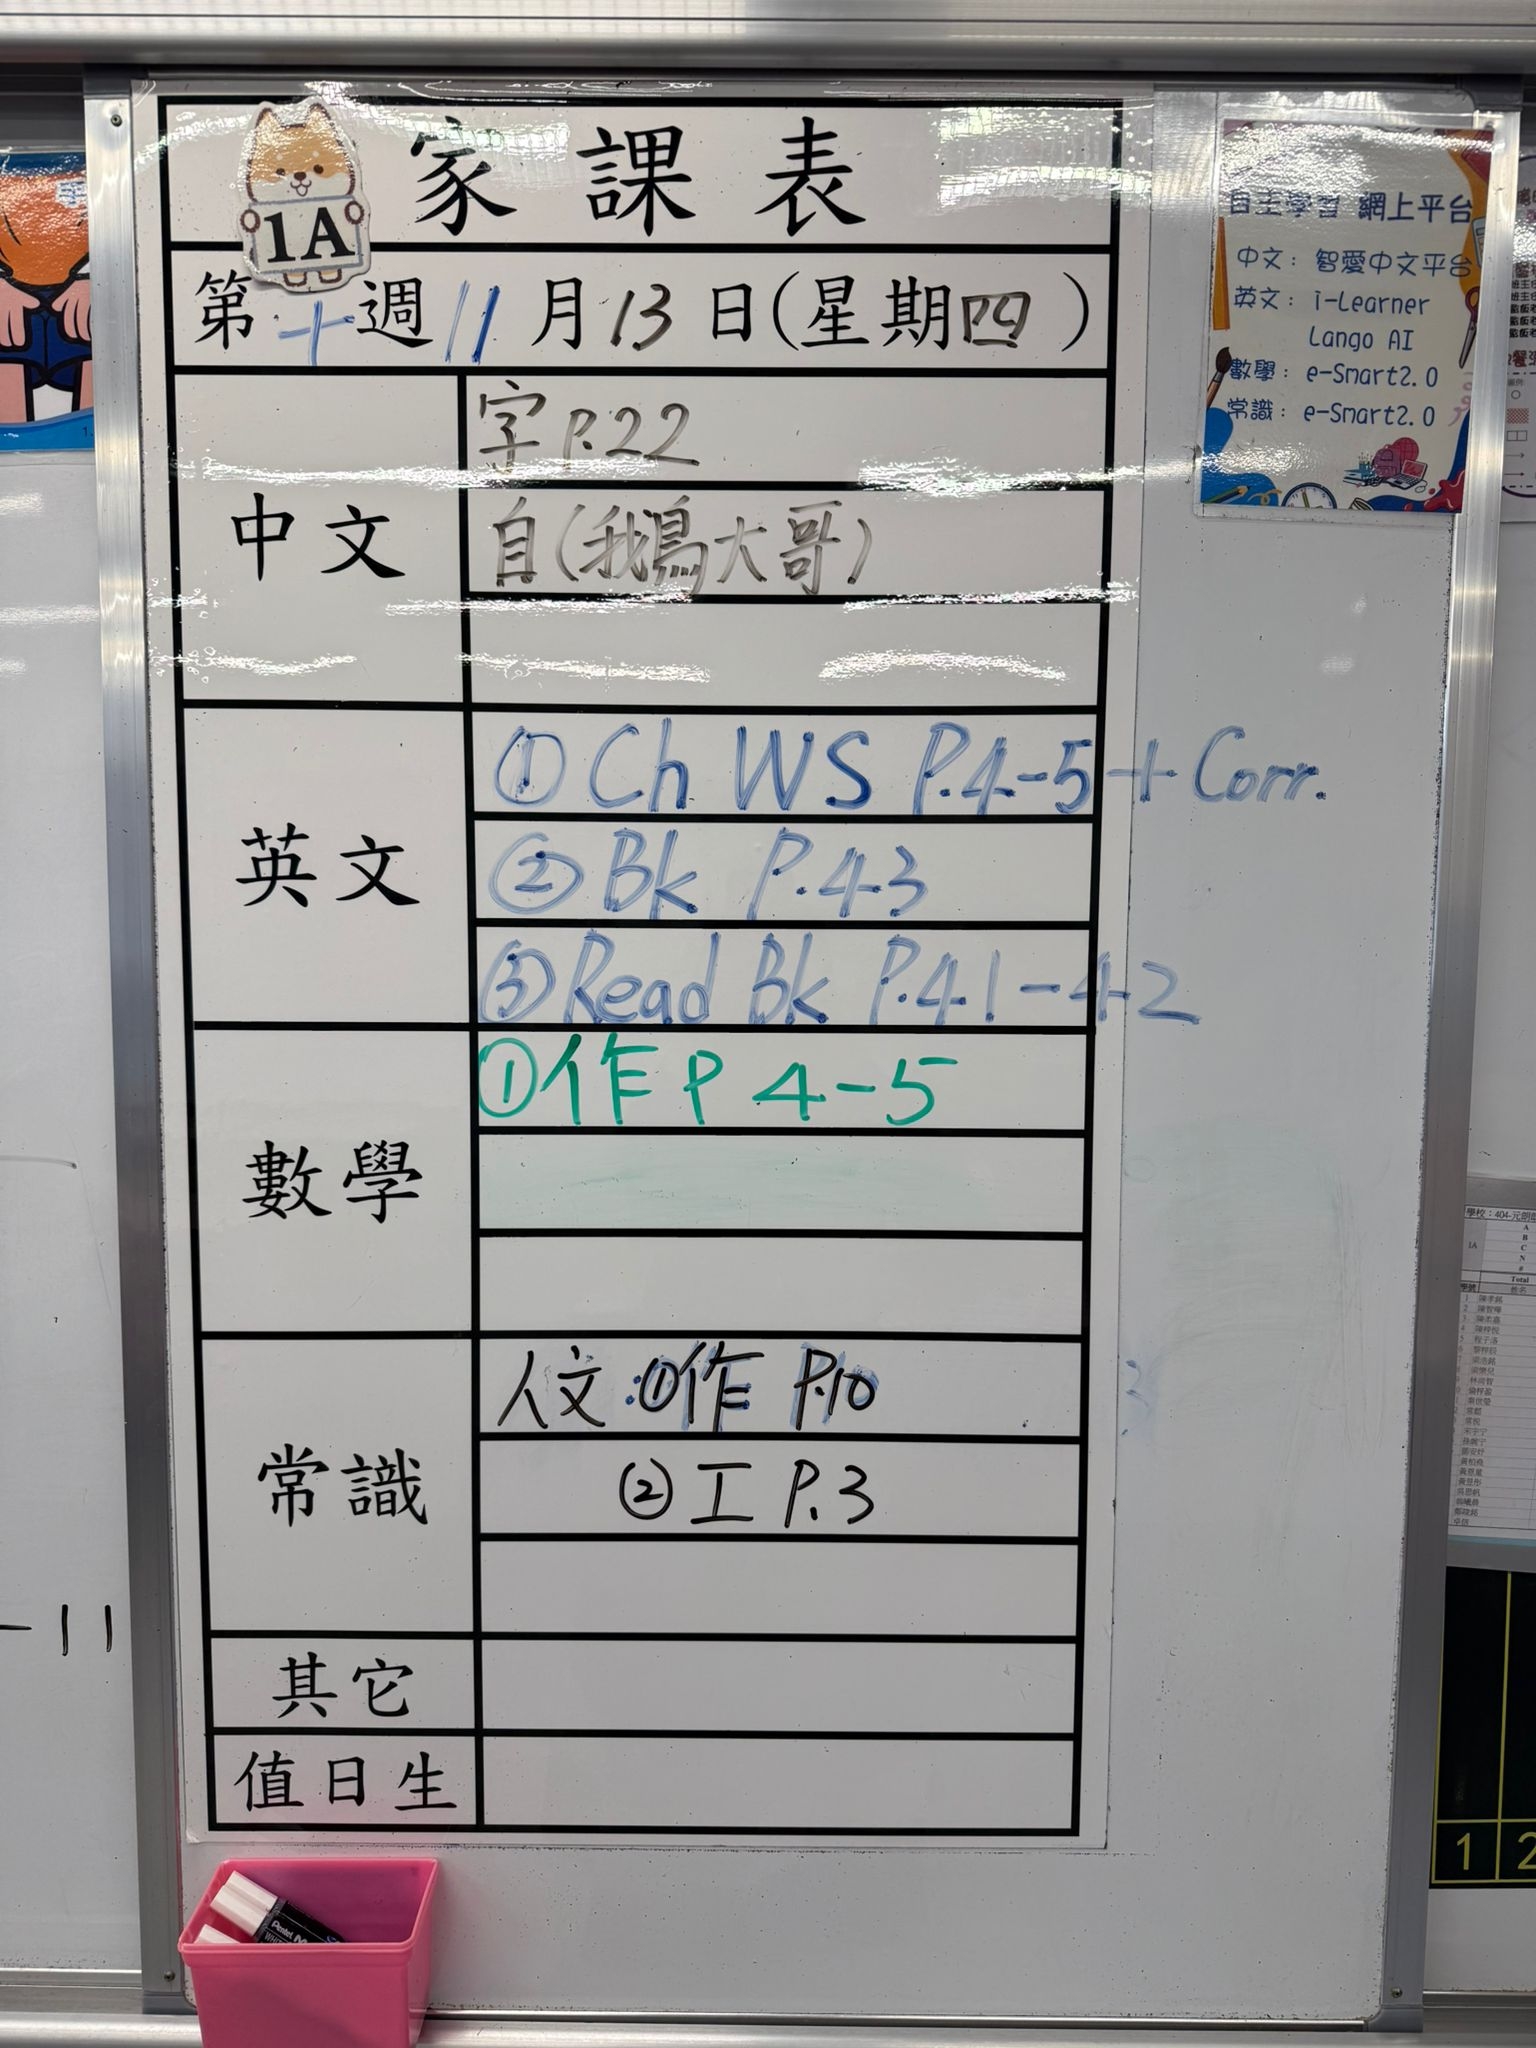 家課表
1A
第十週11月13日(星期四)
中文
字 P.22
自(我鳥大哥)
英文
① Ch WS P.4-5 + Corr.
② Bk P.43
③ Read Bk P.41-42
數學
① 作 P 4-5
常識
人文:①作 P.10
② 工 P.3
其它
值日生
自主學習 網上平台
中文: 智愛中文平台
英文: i-Learner
Lango AI
數學: e-Smart2.0
常識: e-Smart2.0
-11
Pentel
學校:404-元朗
1A
A
B
C
N
#
Total
學號
姓名
1 2